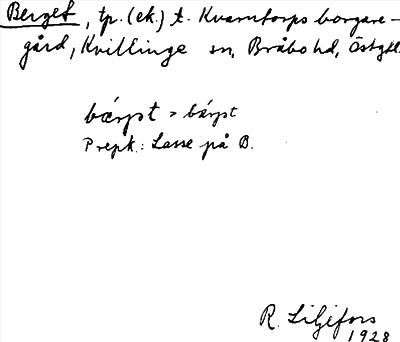 Berget, tp. (ek.) t. Kvarntorps borgare-
gård, Kvillinge sn, Bråbo hd, Östgtl.
bærpst > bárpst
Prepk.: Lasse på B.
R. Liljefors
1928